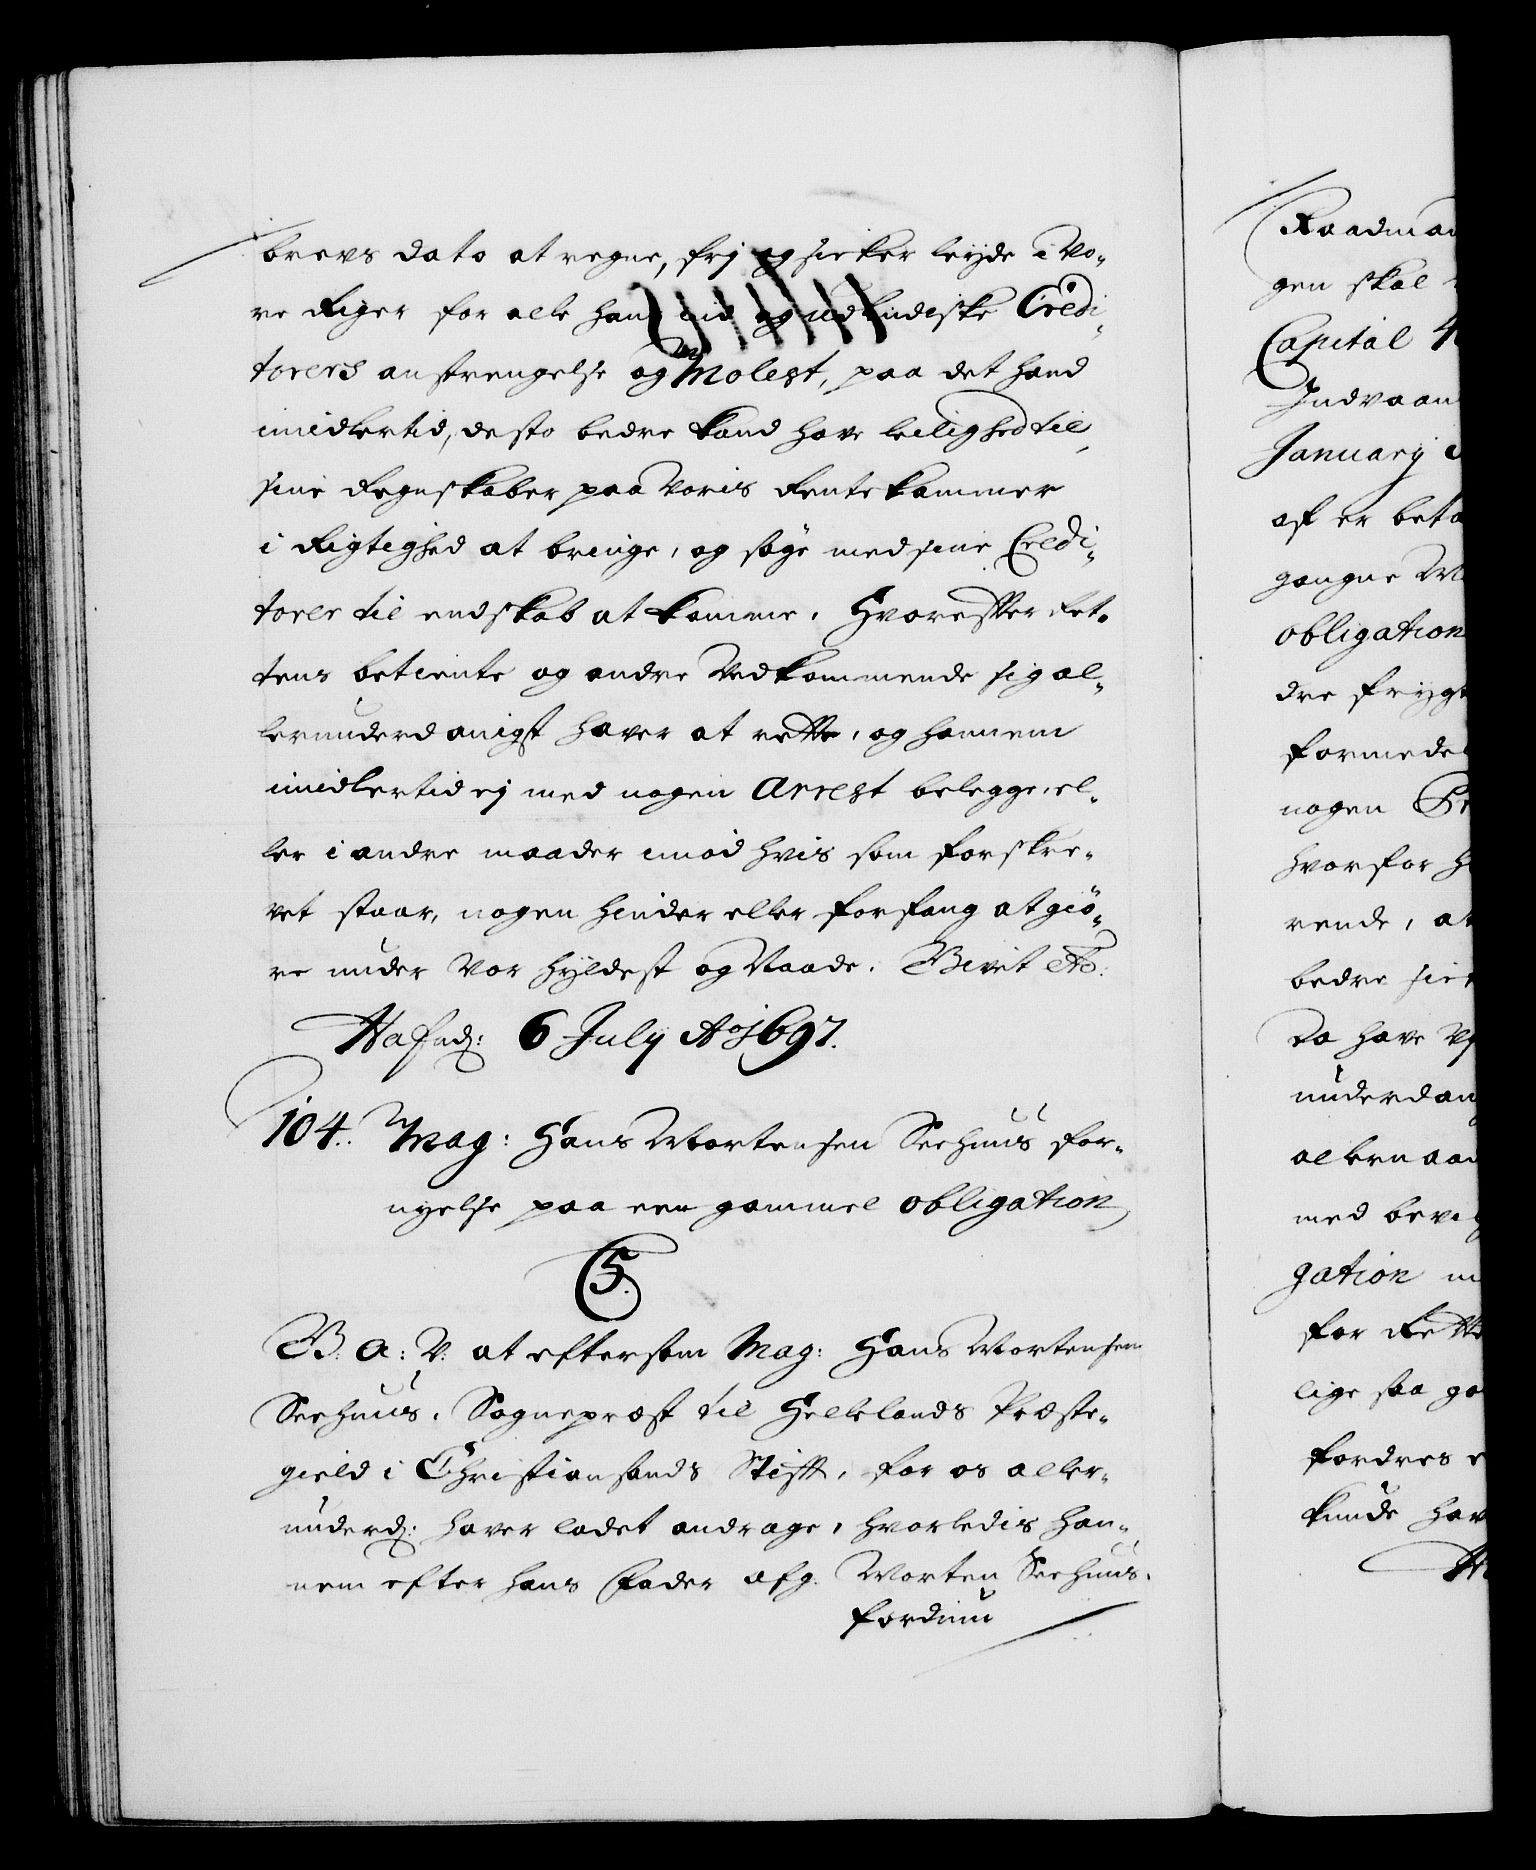 brevs dato at regne, frj og sicker leyde i Vo-
re Riger for alle hans ind og udlendiske Credi-
torers anstrengelse og Molest, paa det hand
imidlertid, desto bedre kand have leilighed til,
sine Regnskaber paa Voris Rentekammer
i Rigtighed at bringe, og søge med sine Credi-
torer til endskab at komme. Hvorefter Ret-
tens betiente og andre Vedkommende sig al-
lerunderdanigst haver at rette, og hannem
imidlertid ej med nogen Arrest belegge, el-
ler i andre maader imod hvis som forskre-
vet staar, nogen hinder eller forfang at giö-
re under Vor hyldest og Naade. Givet
Hafnd: 6 July Ao 1697.
104. Mag: Hans Mortensen Seehuus for-
nyelse paa een gammel obligation
C 5.
G. A: V: at eftersom Mag: Hans Mortensen
Seehuus, Sognepræst til Hellelands Præste-
gield i Christiansands Stift, for os aller-
underd: haver ladet andrage, hvorledis han-
nem efter hans Fader afg. Morten Seehuus,
fordum
Raadman
gen skal
Capital 4
Indvaan
January
af er beta
gangne
obligation
dre frygt
formedel
nogen
hvorfor h
rende, at
bedre
Da have Vj
underdan
allernaad
med bevilg
gation
for Rette
lige saa go
fordres
kunde hav